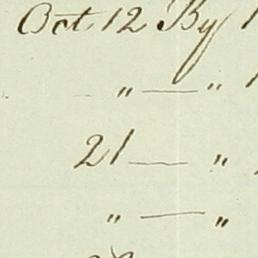 Oct 12 By
" — "
21 — "
" — "